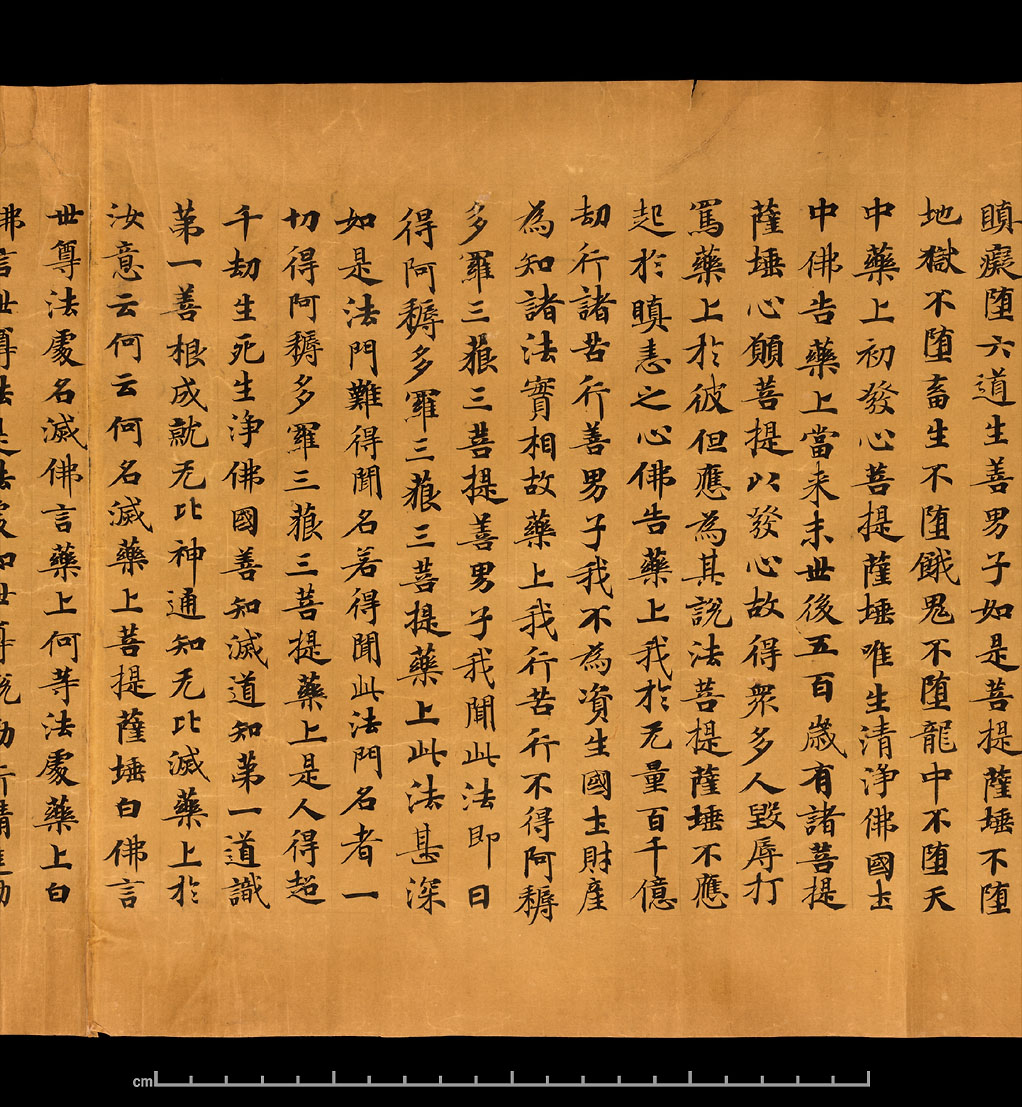 瞋癡堕六道生善男子如是菩提薩埵不堕
地獄不堕畜生不堕餓鬼不堕龍中不堕天
中藥上初發心菩提薩埵唯生清淨佛國土
中佛告藥上當来末世後五百歲有諸菩提
薩埵心願菩提以發心故得衆多人毀辱打
罵藥上於彼但應為其說法菩提薩埵不應
起於瞋恚之心佛告藥上我於无量百千億
劫行諸苦行善男子我不為資生國土財產
為知諸法實相故藥上我行苦行不得阿耨
多羅三藐三菩提善男子我聞此法即日
得阿耨多羅三藐三菩提藥上此法甚深
如是法門難得聞名若得聞此法門名者一
切得阿耨多羅三藐三菩提藥上是人得超
千劫生死生淨佛國善知滅道知第一道識
第一善根成就无比神通知无比滅藥上於
汝意云何云何名滅藥上菩提薩埵白佛言
世尊法處名滅佛言藥上何等法處藥上白
佛言世尊法
cm